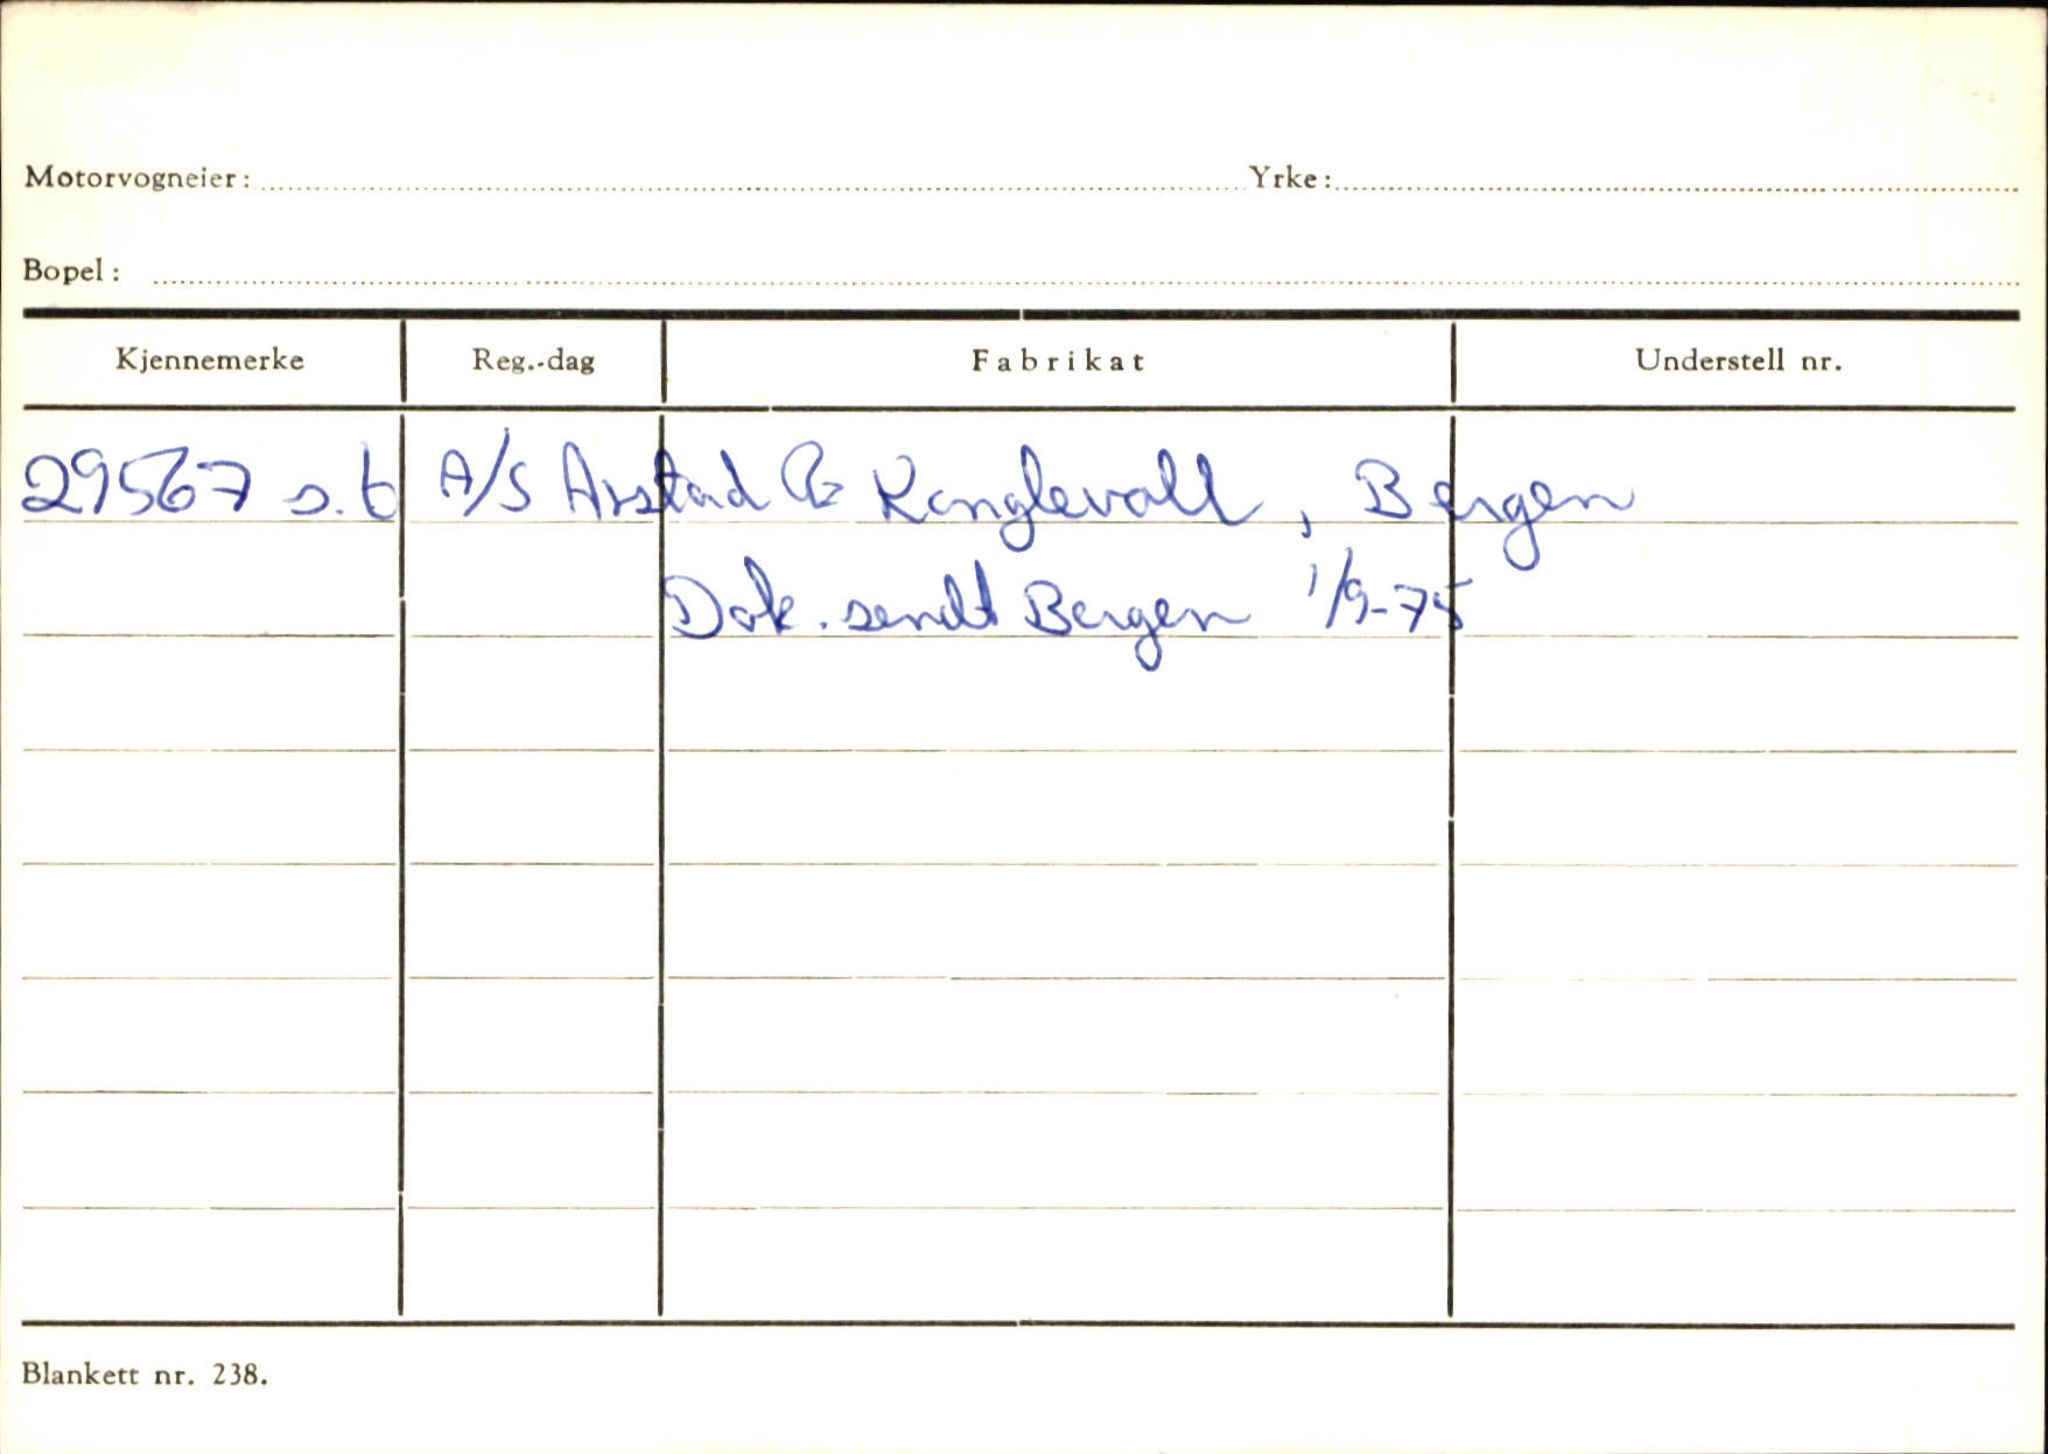 Motorvogneier: Yrke:
Bopel:
Kjennemerke Reg.-dag Fabrikat Understell nr.
29567 s.t A/S Arstad & Kanglevall, Bergen
Dok. sendt Bergen 1/9-75
Blankett nr. 238.